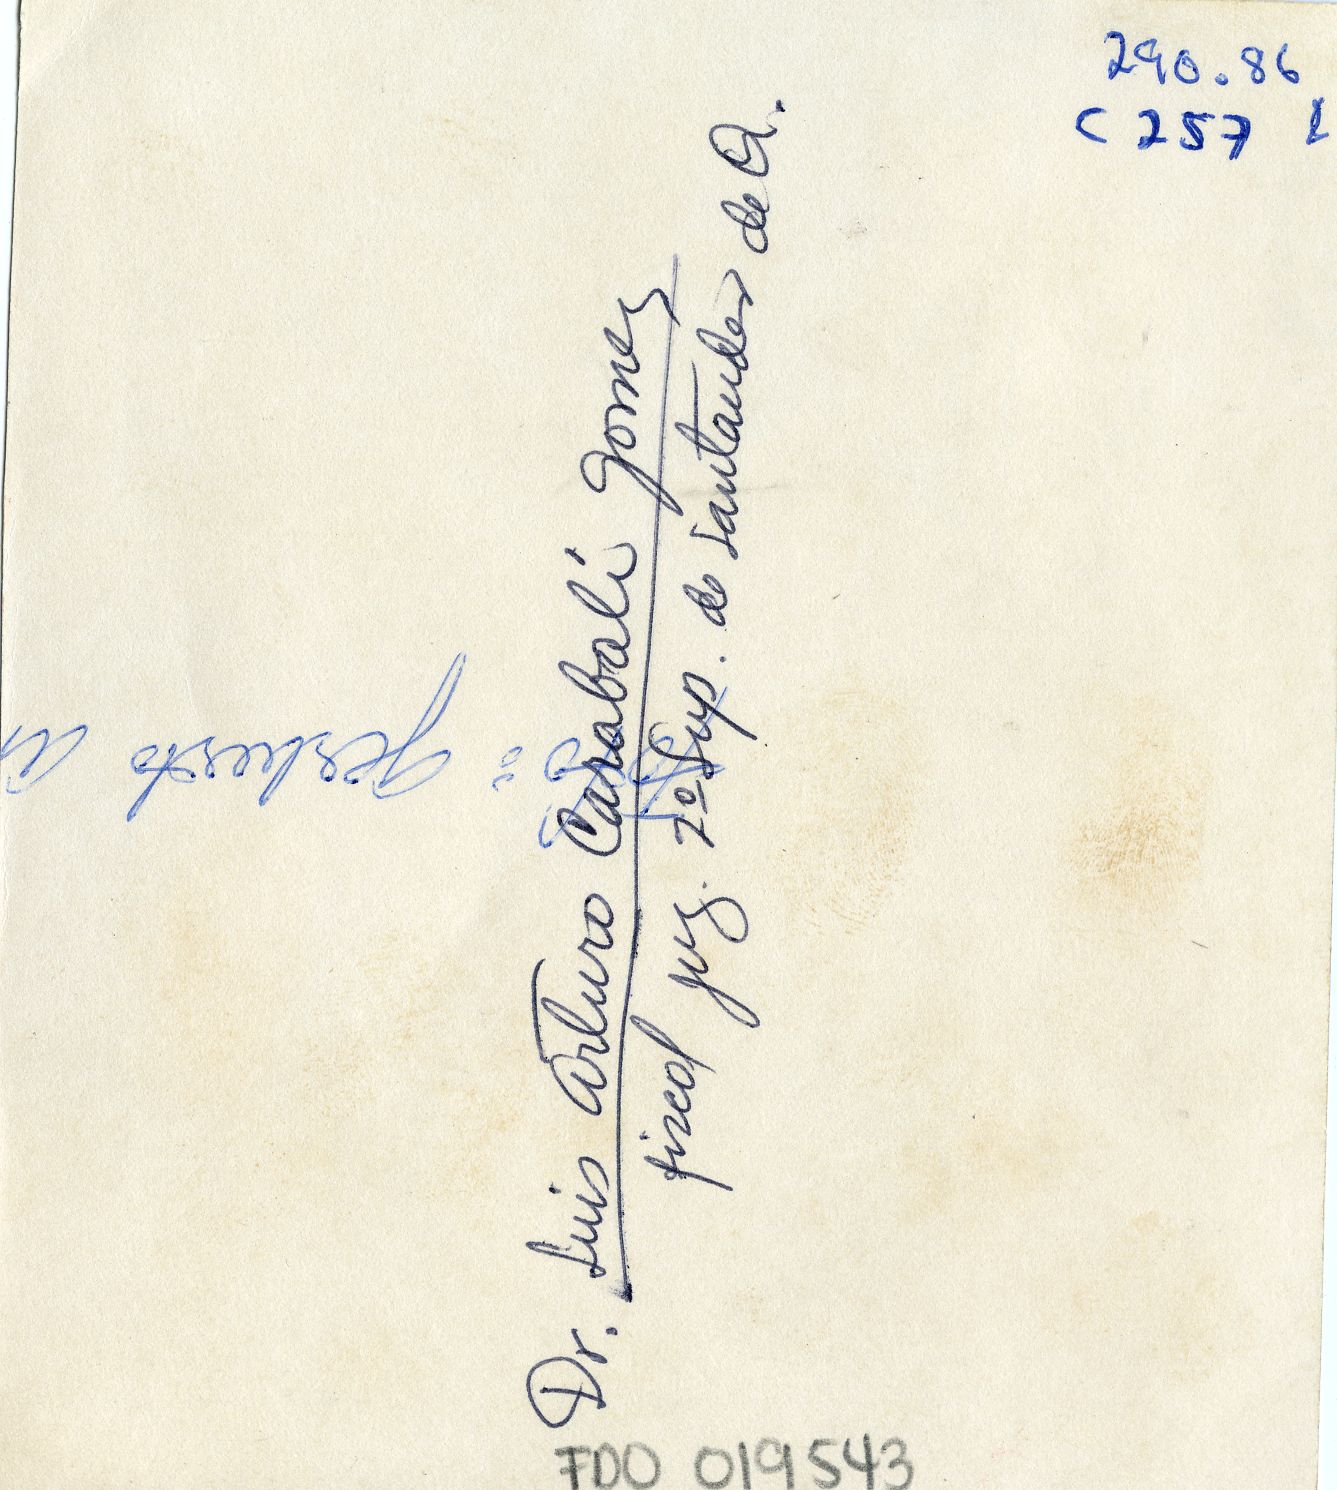 290.86
C 257 l
Dr. Luis Arturo Carabalí Gomez
fiscal juz. 2º Sup. de Santander de Q.
Foto: Gerberto
FDO 019543